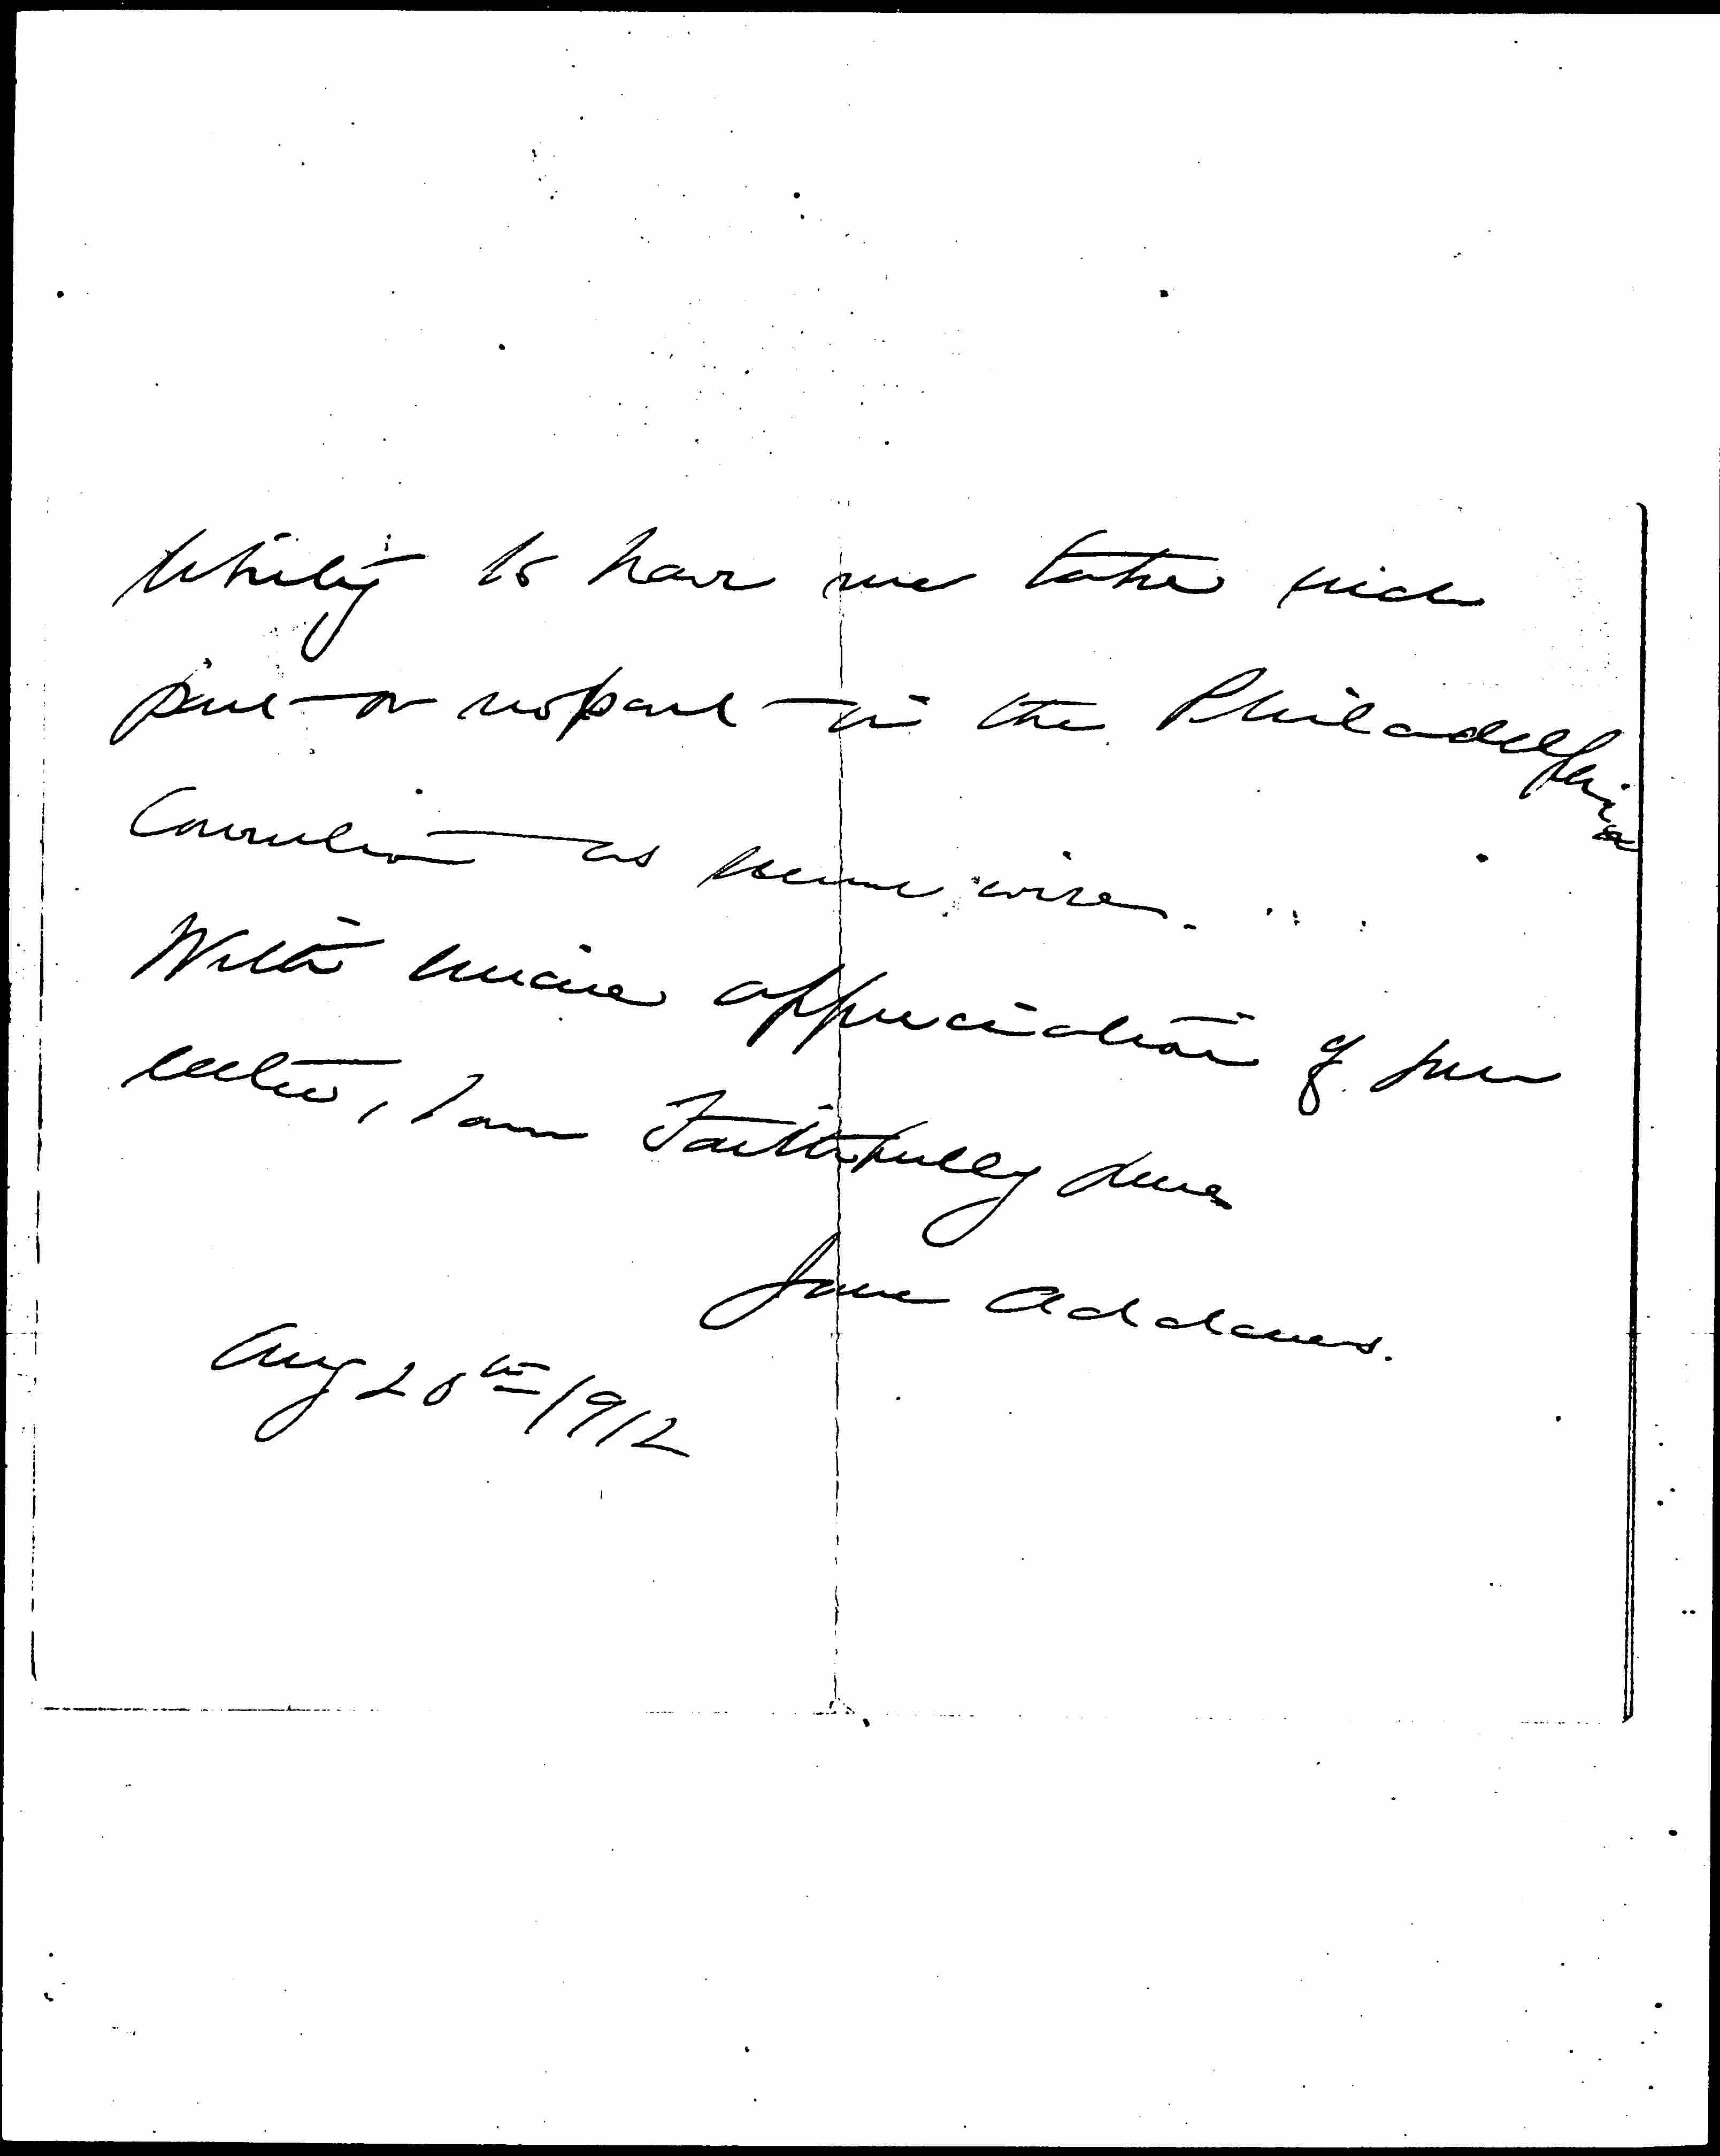 to have me take such
part - or no part - in the Philadelphia
Convention as seems wise.
With sincere appreciation of your
letter, I am Faithfully yours
Jane Addams.
Aug 20th 1912